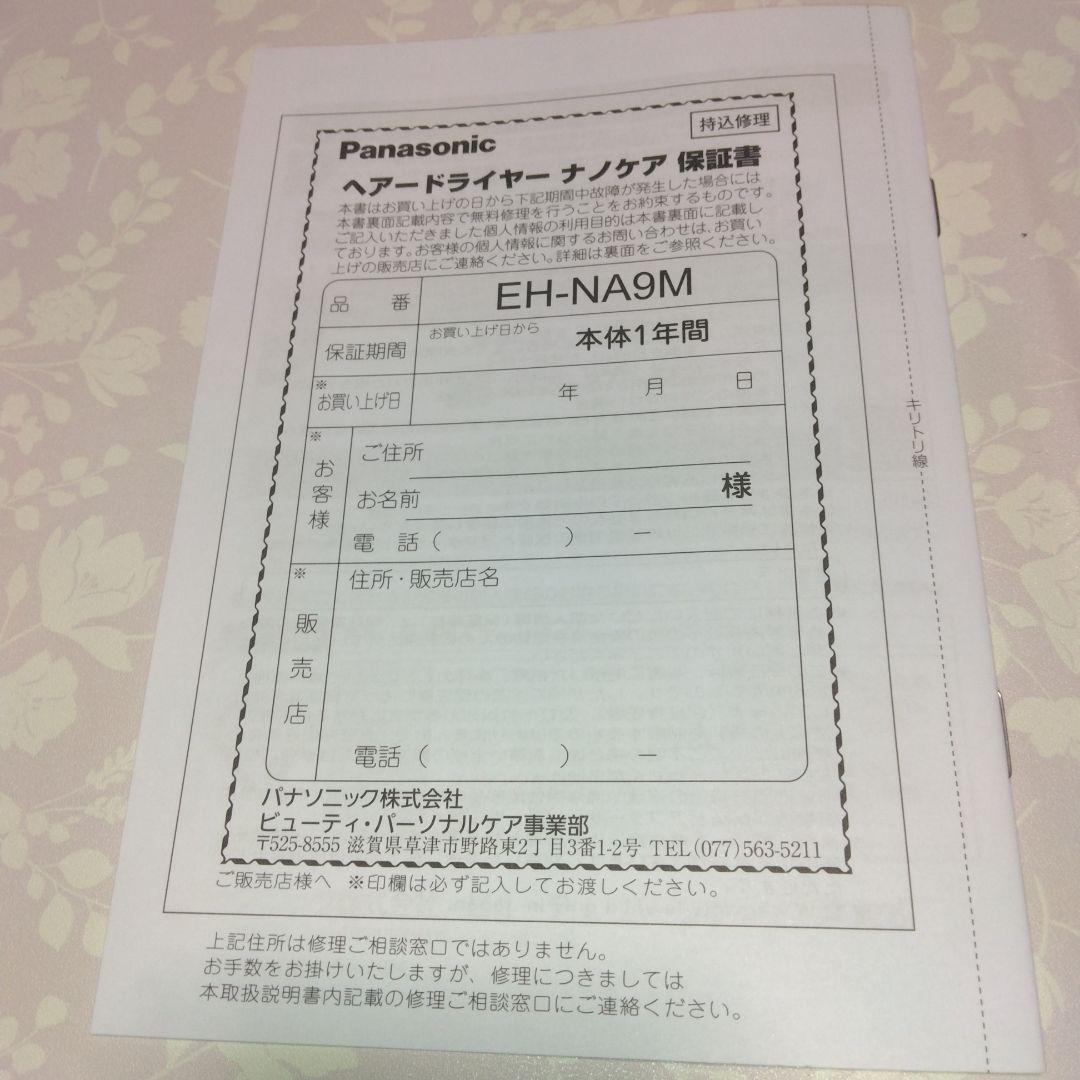 持込修理
Panasonic
ヘアードライヤー ナノケア 保証書
本書はお買い上げの日から下記期間中故障が発生した場合には
本書裏面記載内容で無料修理を行うことをお約束するものです。
ご記入いただきました個人情報の利用目的は本書裏面に記載し
ております。お客様の個人情報に関するお問い合わせは、お買い
上げの販売店にご連絡ください。詳細は裏面をご参照ください。
品番 EH-NA9M
保証期間 お買い上げ日から 本体1年間
※お買い上げ日 年 月 日
※お客様
ご住所
お名前 様
電話( ) ー
※販売店
住所・販売店名
電話( ) ー
パナソニック株式会社
ビューティ・パーソナルケア事業部
〒525-8555 滋賀県草津市野路東2丁目3番1-2号 TEL(077)563-5211
ご販売店様へ ※印欄は必ず記入してお渡しください。
上記住所は修理ご相談窓口ではありません。
お手数をお掛けいたしますが、修理につきましては
本取扱説明書内記載の修理ご相談窓口にご連絡ください。
キリトリ線